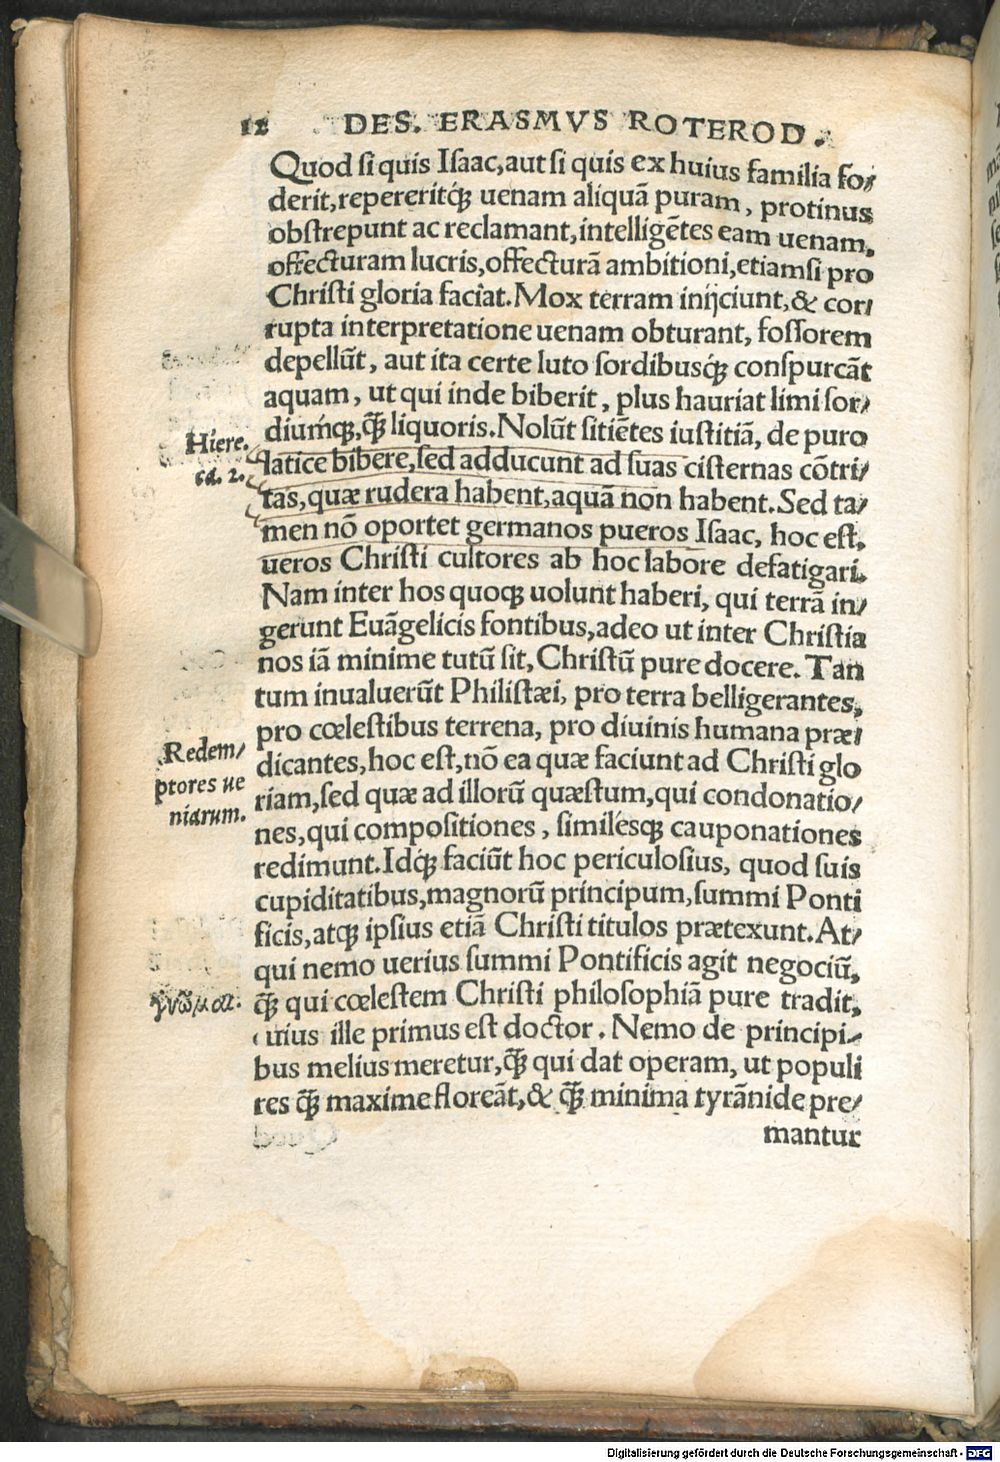 12 DES. ERASMVS ROTEROD.
Quod si quis Isaac, aut si quis ex huius familia fo-
derit, repereritq́; uenam aliquã puram, protinus
obstrepunt ac reclamant, intelligẽtes eam uenam,
offecturam lucris, offecturã ambitioni, etiamsi pro
Christi gloria faciat. Mox terram inijciunt, & cor-
rupta interpretatione uenam obturant, fossorem
depellũt, aut ita certe luto sordibusq́; conspurcãt
aquam, ut qui inde biberit, plus hauriat limi sor-
diumq́;, q̃ liquoris. Nolũt sitiẽtes iustitiã, de puro
Hiere.
ca. 2.
latice bibere, sed adducunt ad suas cisternas cõtri-
tas, quæ rudera habent, aquã non habent. Sed ta-
men nõ oportet germanos pueros Isaac, hoc est,
ueros Christi cultores ab hoc labore defatigari.
Nam inter hos quoq; uolunt haberi, qui terrã in-
gerunt Euãgelicis fontibus, adeo ut inter Christia
nos iã minime tutũ sit, Christũ pure docere. Tan
tum inualuerũt Philistæi, pro terra belligerantes,
pro cœlestibus terrena, pro diuinis humana præ-
Redem-
ptores ue
niarum.
dicantes, hoc est, nõ ea quæ faciunt ad Christi glo
riam, sed quæ ad illorũ quæstum, qui condonatio-
nes, qui compositiones, similesq; cauponationes
redimunt. Idq́; faciũt hoc periculosius, quod suis
cupiditatibus, magnorũ principum, summi Ponti
ficis, atq; ipsius etiã Christi titulos prætexunt. At-
qui nemo uerius summi Pontificis agit negociũ,
γνῶμαι.
q̃ qui cœlestem Christi philosophiã pure tradit,
cuius ille primus est doctor. Nemo de principi-
bus melius meretur, q̃ qui dat operam, ut populi
res q̃ maxime floreãt, & q̃ minima tyrãnide pre-
mantur
Digitalisierung gefördert durch die Deutsche Forschungsgemeinschaft - DFG